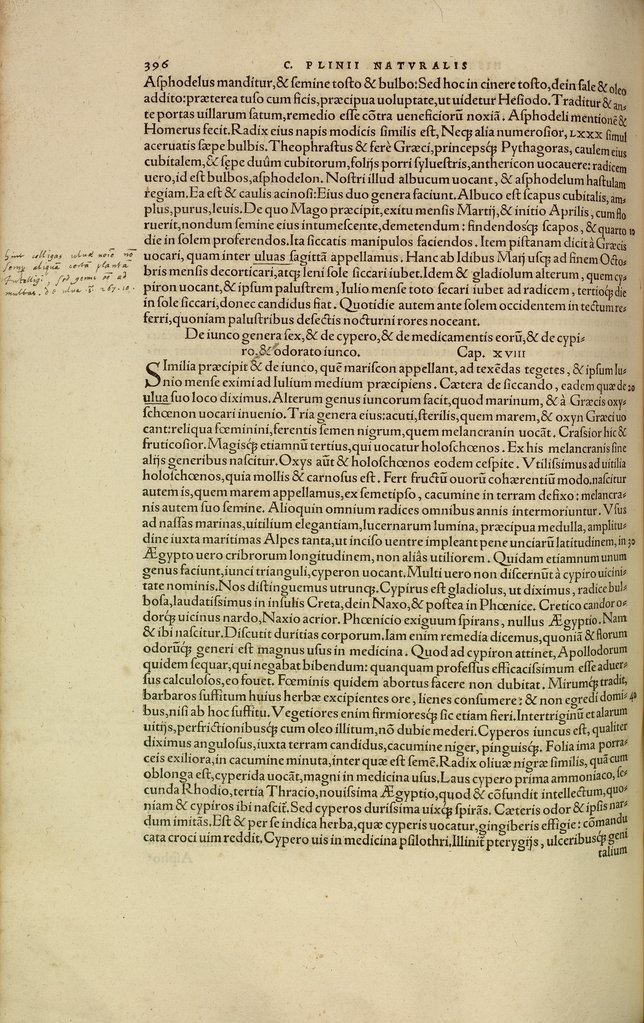 396
C. PLINII NATVRALIS
Aſphodelus manditur,& ſemine toſto & bulbo:Sed hoc in cinere toſto,dein ſale & oleo
addito:præterea tuſo cum ficis,præcipua uoluptate,ut uidetur Heſiodo.Traditur & an-
te portas uillarum ſatum,remedio eſſe cōtra ueneficiorū noxiā. Aſphodeli mentionē &
Homerus fecit.Radix eius napis modicis ſimilis eſt, Neqȝ alia numeroſior, LXXX ſimul
aceruatis ſæpe bulbis. Theophraſtus & ferè Græci,princepsqȝ Pythagoras, caulem eius
cubitalem,& ſepe duûm cubitorum,folijs porri ſylueſtris,anthericon uocauere: radicem
uero,id eſt bulbos,aſphodelon. Noſtri illud albucum uocant, & aſphodelum haſtulam
regiam. Ea eſt & caulis acinoſi:Eius duo genera faciunt. Albuco eſt ſcapus cubitalis, am-
plus,purus,leuis. De quo Mago præcipit,exitu menſis Martij,& initio Aprilis, cum flo
ruerit,nondum ſemine eius intumeſcente,demetendum: findendosqȝ ſcapos, & quarto
10
die in ſolem proferendos. Ita ſiccatis manipulos faciendos. Item piſtanam dicit à Græcis
uocari, quam inter uluas ſagittā appellamus. Hanc ab Idibus Maij uſqȝ ad finem Octo-
bris menſis decorticari,atqȝ leni ſole ſiccari iubet. Idem & gladiolum alterum, quem cy-
piron uocant,& ipſum paluſtrem, Iulio menſe toto ſecari iubet ad radicem, tertioqȝ die
in ſole ſiccari,donec candidus fiat. Quotidie autem ante ſolem occidentem in tectum re-
ferri,quoniam paluſtribus deſectis nocturni rores noceant.
De iunco genera ſex,& de cypero, & de medicamentis eorū,& de cypi-
ro,& odorato iunco. Cap. XVIII
Similia præcipit & de iunco, quē mariſcon appellant, ad texēdas tegetes, & ipſum Iu-
nio menſe eximi ad Iulium medium præcipiens. Cætera de ſiccando, eadem quæ de
20
ulua ſuo loco diximus. Alterum genus iuncorum facit,quod marinum, & à Græcis oxy-
ſchœnon uocari inuenio. Tria genera eius:acuti,ſterilis,quem marem,& oxyn Græci uo
cant:reliqua fœminini,ferentis ſemen nigrum,quem melancranin uocāt. Craſsior hic &
fruticoſior. Magisqȝ etiamnū tertius,qui uocatur holoſchœnos. Ex his melancranis ſine
alijs generibus naſcitur. Oxys aūt & holoſchœnos eodem ceſpite. Vtiliſsimus ad uitilia
holoſchœnos,quia mollis & carnoſus eſt. Fert fructū ouorū cohærentiū modo.naſcitur
autem is,quem marem appellamus,ex ſemetipſo, cacumine in terram defixo: melancra-
nis autem ſuo ſemine. Alioquin omnium radices omnibus annis intermoriuntur. Vſus
ad naſſas marinas,uitilium elegantiam,lucernarum lumina, præcipua medulla, amplitu-
dine iuxta maritimas Alpes tanta,ut inciſo uentre impleant pene unciarū latitudinem, in
30
Ægypto uero cribrorum longitudinem, non aliâs utiliorem. Quidam etiamnum unum
genus faciunt,iunci trianguli,cyperon uocant. Multi uero non diſcernūt à cypiro uicini-
tate nominis. Nos diſtinguemus utrunqȝ. Cypirus eſt gladiolus, ut diximus, radice bul-
boſa,laudatiſsimus in inſulis Creta,dein Naxo,& poſtea in Phœnice. Cretico candor o-
dorqȝ uicinus nardo,Naxio acrior. Phœnicio exiguum ſpirans, nullus Ægyptio. Nam
& ibi naſcitur. Diſcutit duritias corporum. Iam enim remedia dicemus,quoniā & florum
odorūqȝ generi eſt magnus uſus in medicina. Quod ad cypiron attinet, Apollodorum
quidem ſequar,qui negabat bibendum: quanquam profeſſus efficaciſsimum eſſe aduer-
ſus calculoſos,eo fouet. Fœminis quidem abortus facere non dubitat. Mirumqȝ tradit,
barbaros ſuffitum huius herbæ excipientes ore, lienes conſumere: & non egredi domi-
40
bus,niſi ab hoc ſuffitu. Vegetiores enim firmioresqȝ ſic etiam fieri. Intertriginū et alarum
uitijs,perfrictionibusqȝ cum oleo illitum,nō dubie mederi. Cyperos iuncus eſt, qualiter
diximus anguloſus,iuxta terram candidus,cacumine niger, pinguisqȝ. Folia ima porra-
ceis exiliora,in cacumine minuta,inter quæ eſt ſemē. Radix oliuæ nigræ ſimilis, quā cum
oblonga eſt,cyperida uocāt,magni in medicina uſus. Laus cypero prima ammoniaco, ſe-
cunda Rhodio,tertia Thracio,nouiſsima Ægyptio,quod & cōfundit intellectum,quo-
niam & cypiros ibi naſcit̃. Sed cyperos duriſsima uixqȝ ſpirās. Cæteris odor & ipſis nar-
dum imitās. Eſt & per ſe indica herba,quæ cyperis uocatur,gingiberis effigie: cōmandu
cata croci uim reddit. Cypero uis in medicina pſilothri, Illinit̃ pterygijs, ulceribusqȝ geni
talium